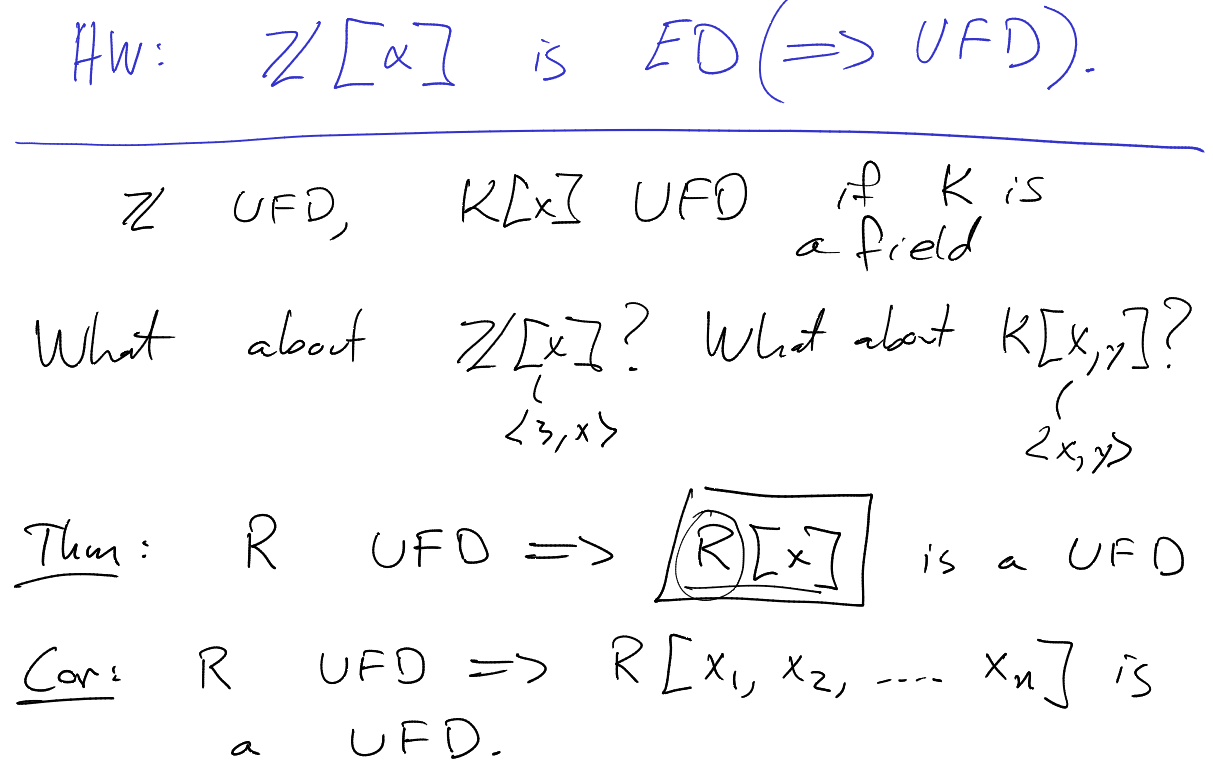 HW: ℤ[α] is ED (=> UFD).
ℤ UFD, K[x] UFD if K is
a field
What about ℤ[x]? What about K[x,y]?
<3,x> <x,y>
Thm: R UFD => R[x] is a UFD
Cor: R UFD => R[x₁, x₂, .... xₙ] is
a UFD.